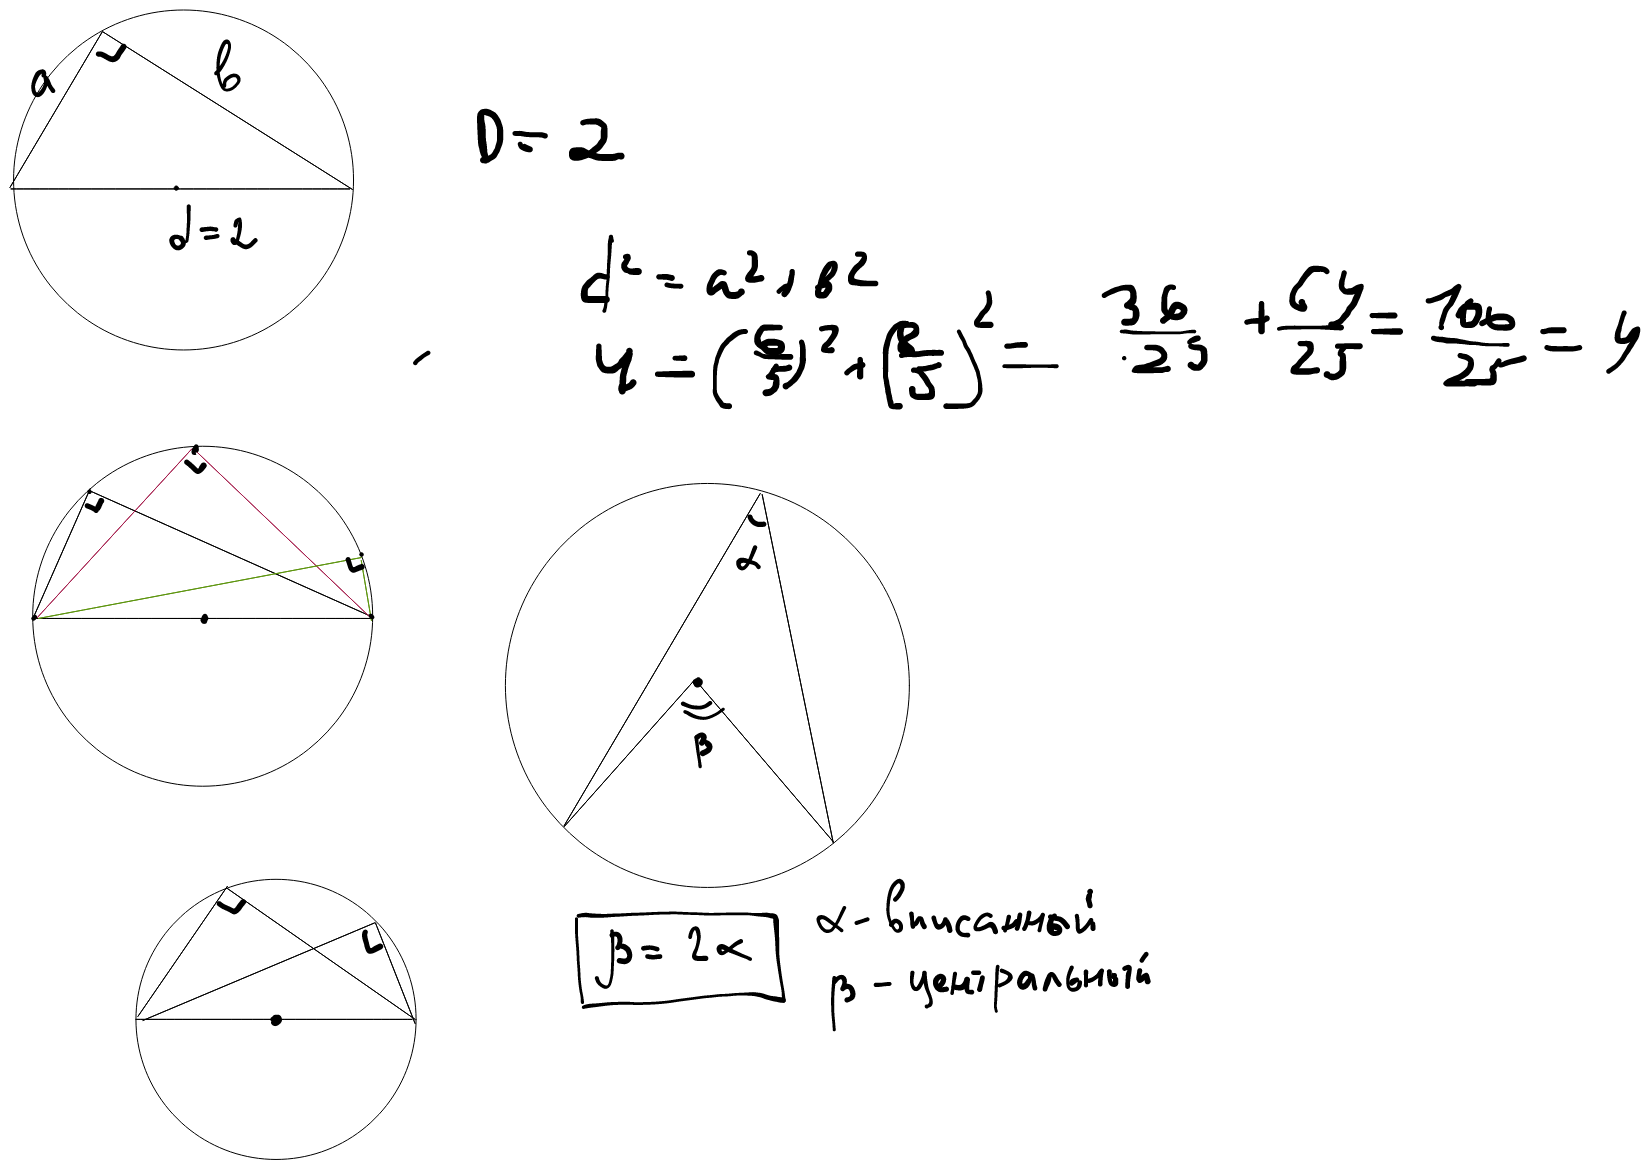 a
b
d=2
D=2
d² = a² + b²
4 = (6/5)² + (8/5)² = 36/25 + 64/25 = 100/25 = 4
α
β
β = 2α
α - вписанный
β - центральный